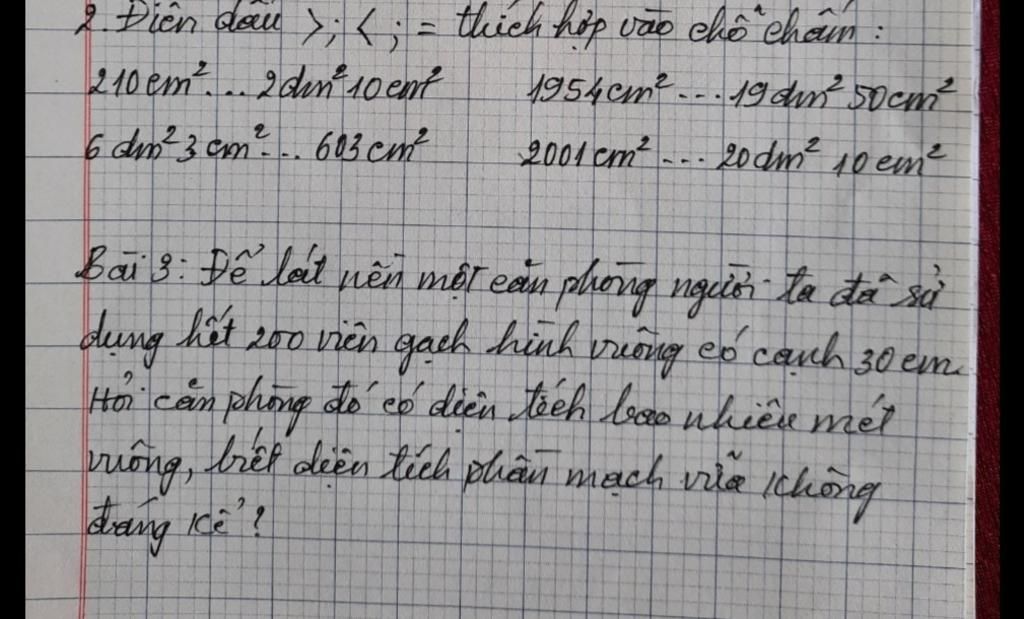 2. Điền dấu >; < ; = thích hợp vào chỗ chấm :
210cm²... 2dm²10cm² 1954cm²...19dm² 50cm²
6 dm²3 cm²... 603cm² 2001cm²... 20dm² 10cm²
Bài 3: Để lát nền một căn phòng người ta đã sử
dụng hết 200 viên gạch hình vuông có cạnh 30cm.
Hỏi căn phòng đó có diện tích bao nhiêu mét
vuông, biết diện tích phần mạch vữa không
đáng kể?